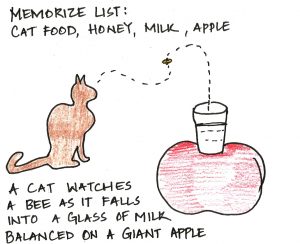 MEMORIZE LIST:
CAT FOOD, HONEY, MILK, APPLE
A CAT WATCHES
A BEE AS IT FALLS
INTO A GLASS OF MILK
BALANCED ON A GIANT APPLE